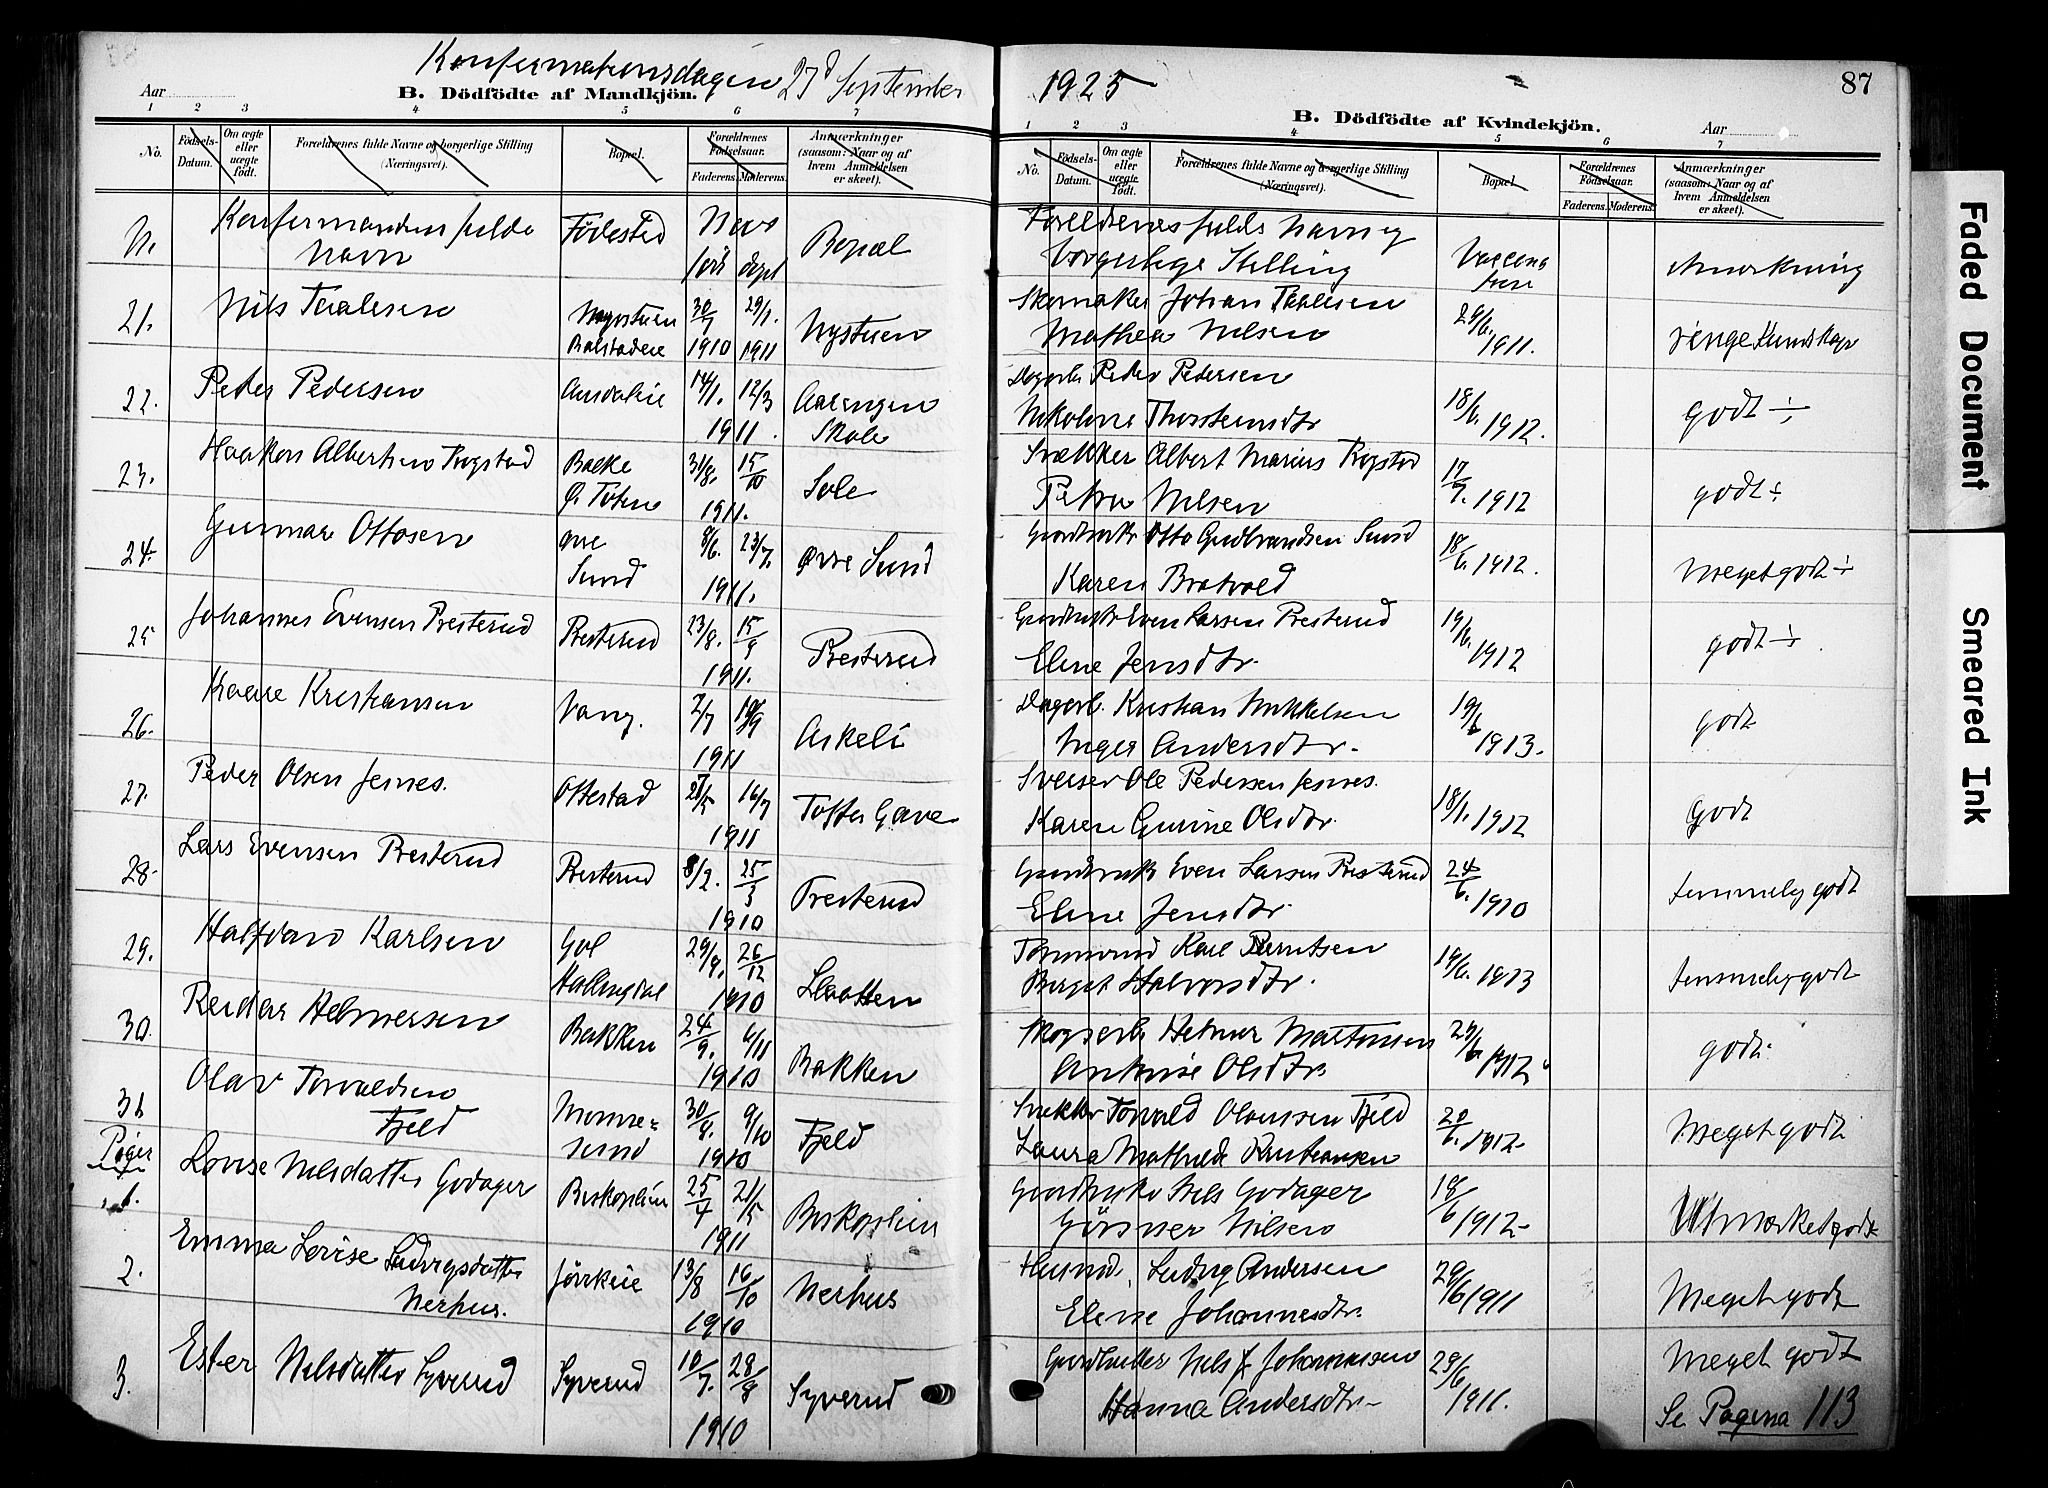 Konfirmationsdagen 27d September 1925
Aar
B. Dödfödte af Mandkjön.
1 2 3 4 5 6 7
No.
Födsels-Datum.
Om ægte eller uægte födt.
Forældrenes fulde Navne og borgerlige Stilling (Næringsvei).
Bopæl.
Forældrenes Födselsaar.
Faderens. Moderens.
Anmærkninger (saasom: Naar og af hvem Anmeldelsen er skeet).
87
B. Dödfödte af Kvindekjön.
Aar
1 2 3 4 5 6 7
No.
Födsels-Datum.
Om ægte eller uægte födt.
Forældrenes fulde Navne og borgerlige Stilling (Næringsvei).
Bopæl.
Forældrenes Födselsaar.
Faderens. Moderens.
Anmærkninger (saasom: Naar og af hvem Anmeldelsen er skeet).
Konfirmandens fulde Navn Födested Naar föd döpt Bopæl
Forældrenes fulde Navn og borgerlige Stilling Anmerkning
21. Nils Taalesen 30/7 1910 29/1. 1911 Nystuen
Skomaker Johan Taalesen Mathea Nilsen 29/6. 1911. ringe Kundskap
22. Peder Pedersen 14/1. 12/3 1911. Aasengen Skole
Dagarb. Peder Pedersen Nikoline Thorsteinsdtr 18/6. 1912. godt ÷
23. Haakon Albertino Rogstad Balke Ø. Toten 31/8. 15/10 1911. Sole
Snekker Albert Marius Rogstad Petra Nilsen 17/7. 1912 godt ÷
24. Gunnar Ottosen Øvre Sund 8/6. 23/7. 1911. Øvre Sund
Gaardbruker Otto Gudbrandsen Sund Karen Bratvold 18/6. 1912. Meget godt ÷
25 Johannes Evensen Presterud Presterud 23/8. 15/9 1911. Presterud
Gaardbruker Even Larsen Presterud Eline Jensdtr. 19/6. 1912 godt ÷
26. Kaare Kristiansen Vang. 2/7 10/9 1911 Askeli
Dagarb. Kristian Mikkelsen Inger Andersdtr. 19/6 1913. godt
27. Peder Olsen Jesnes. Ottestad 21/5 16/7 1911 Toftes Gave
Sveiser Ole Pedersen Jesnes. Karen Gurine Olsdtr. 18/1. 1912 Godt
28. Lars Evensen Presterud Presterud 8/2. 25/3 1910 Presterud
Gaardbruk. Even Larsen Presterud Eline Jensdtr. 24/6. 1910 temmelig godt
29. Halfdan Karlsen Gol Hallingdal 29/9. 26/12 1910 Slaatten
Tömmerm. Karl Berntsen Birgit Halvorsdtr. 19/6. 1913 temmelig godt
30. Reidar Helmersen Bakken 24/9. 6/11 1910 Bakken
Skogsarb. Helmer Martinsen Antonie Olsdtr. 29/6. 1912. godt
31 Olav Torvaldsen Fjeld 30/8. 9/10 1910 Fjeld
Snekker Torvald Olaussen Fjeld Laura Mathilde Kristiansen 20/6. 1912 Meget godt
Piger
1. Lovise Nilsdatter Godager Biskoplien 25/4 21/5 1911 Biskoplien
Gaardbruker Nils Godager Nilsen 18/6 1912 Utmærket godt
2. Emma Lovise Ludvigsdatter Nerhus. 13/8 16/10 1910 Nerhus
Husmd. Ludvig Andersen Eline Johannesdtr. 29/6 1911 Meget godt
3. Ester Nilsdatter Syverud Syverud 10/7. 28/8 1910 Syverud
Nils J. Johannesen Hanna Andersdtr. 29/6 1911. Meget godt
Se Pagina 113
Faded Document
Smeared Ink